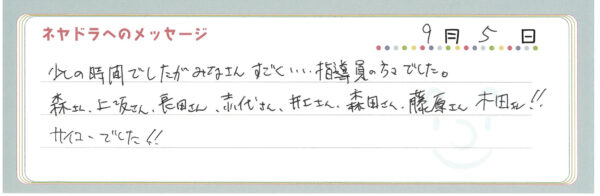 ネヤドラへのメッセージ
9月5日
少しの時間でしたがみなさん すごくいい指導員の方々でした。
森さん、上坂さん、長田さん、赤代さん、井上さん、森田さん、藤原さん 木田さん!!
サイコーでした!!